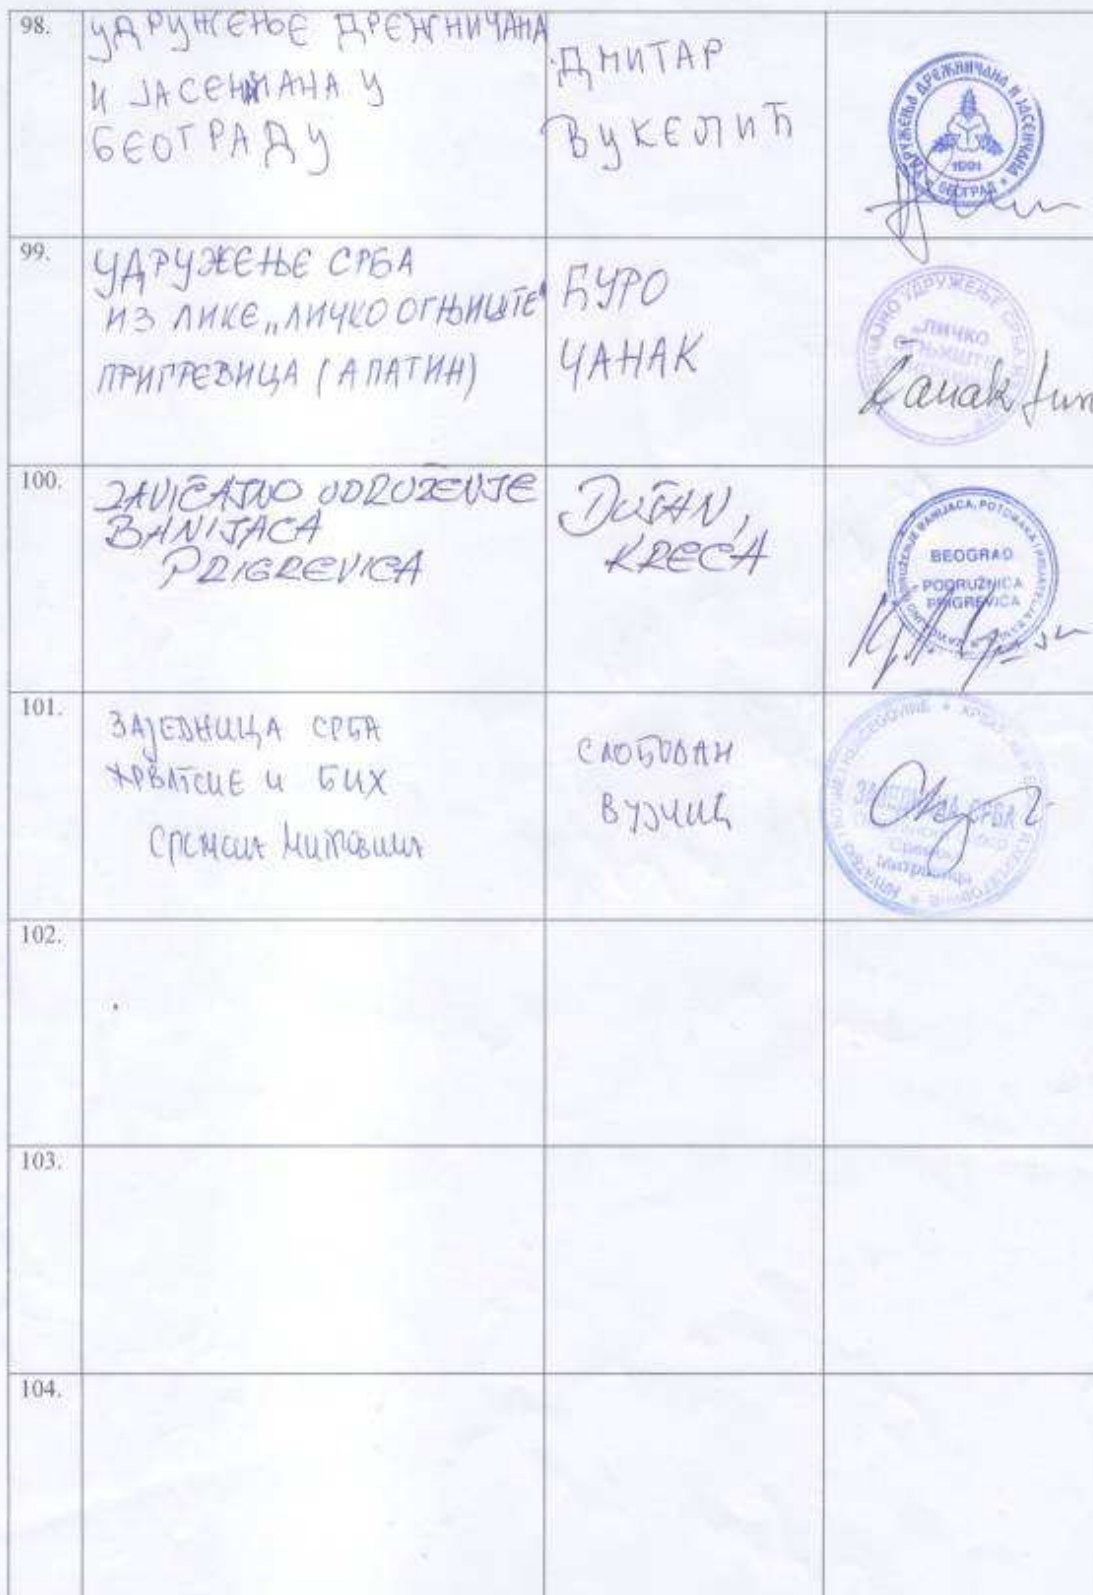 98.
УДРУЖЕЊЕ ДРЕЖНИЧАНА
И ЈАСЕНЧАНА У
БЕОГРАДУ
ДМИТАР
ВУКЕЛИЋ
УДРУЖЕЊА ДРЕЖНИЧАНА И ЈАСЕНЧАНА
1991
БЕОГРАД
99.
УДРУЖЕЊЕ СРБА
ИЗ ЛИКЕ „ЛИЧКО ОГЊИШТЕ"
ПРИГРЕВИЦА (АПАТИН)
ЂУРО
ЧАНАК
УДРУЖЕЊЕ СРБА
„ЛИЧКО
100.
ZAVIČAJNO UDRUŽENJE
BANIJACA
PRIGREVICA
DUŠAN,
KREČA
BANIJACA, POTOMAKA I PRIJATELJA
BEOGRAD
PODRUŽNICA
PRIGREVICA
101.
ЗАЈЕДНИЦА СРБА
ХРВАТСКЕ И БИХ
СРЕМСКА МИТРОВИЦА
СЛОБОДАН
ВУЈЧИЋ
ЗАЈЕДНИЦА СРБА
Сремска
Митровица
102.
103.
104.